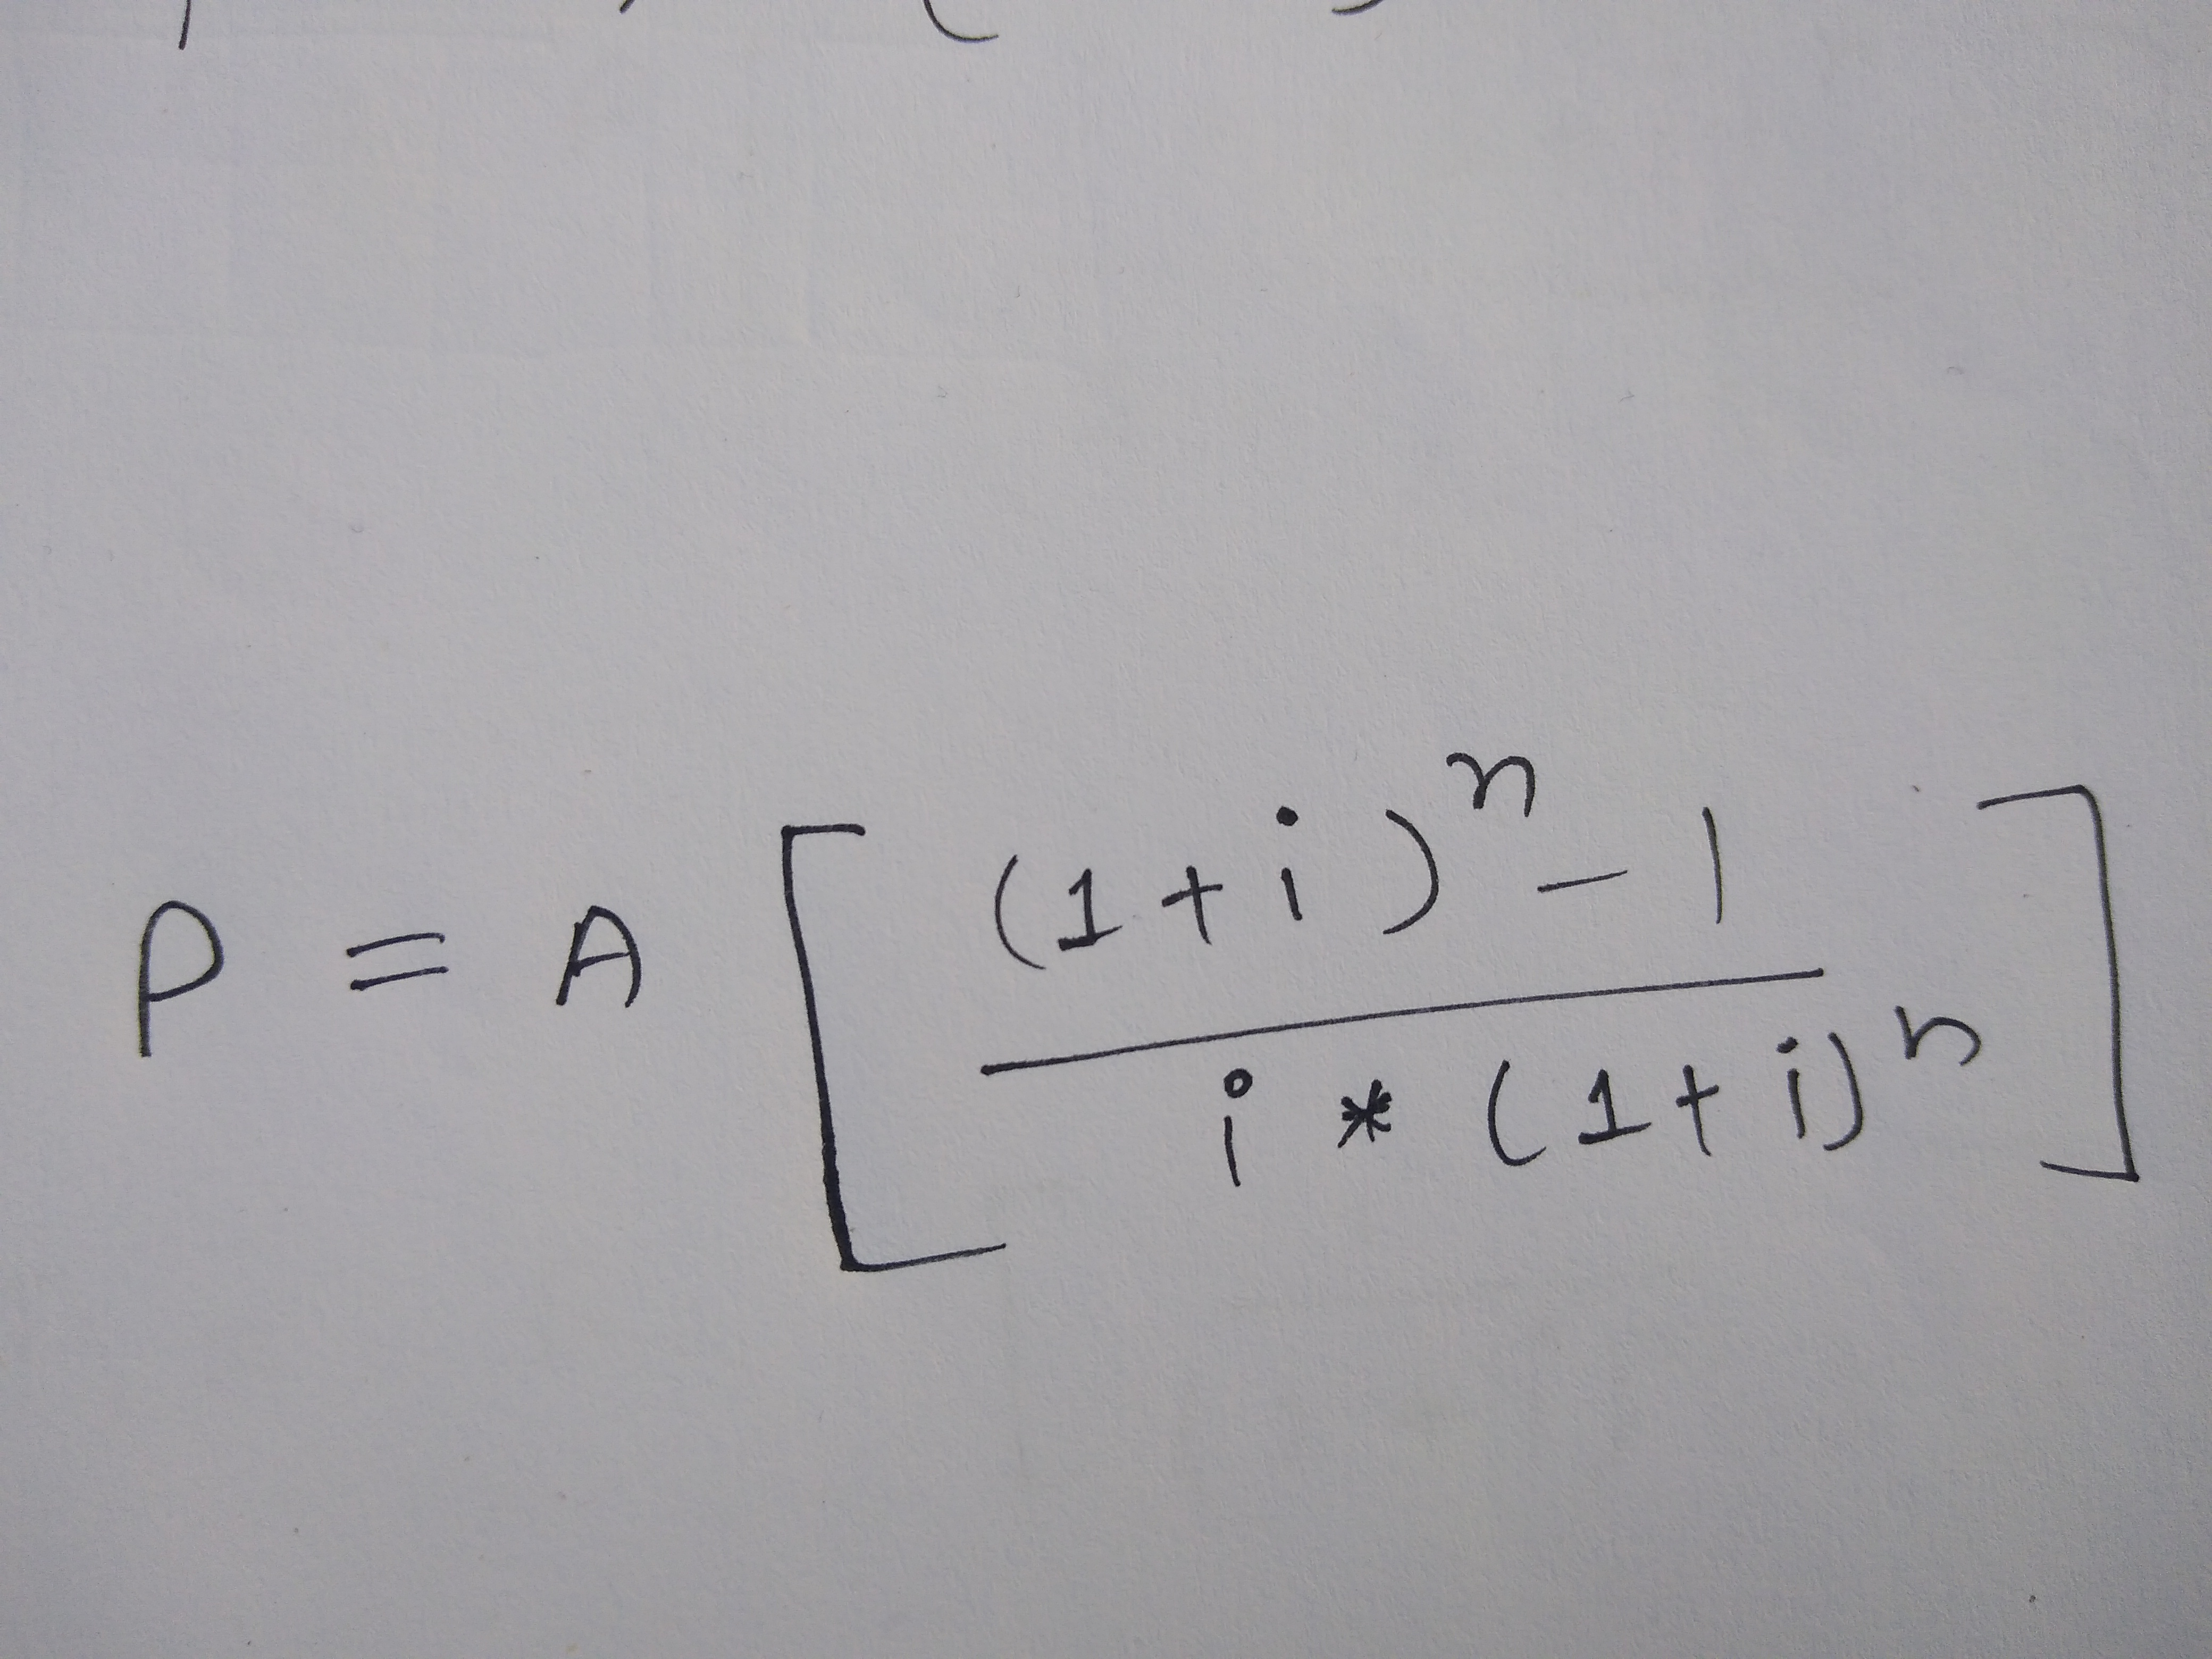 P = A [ (1+i)^n - 1 / i * (1+i)^n ]